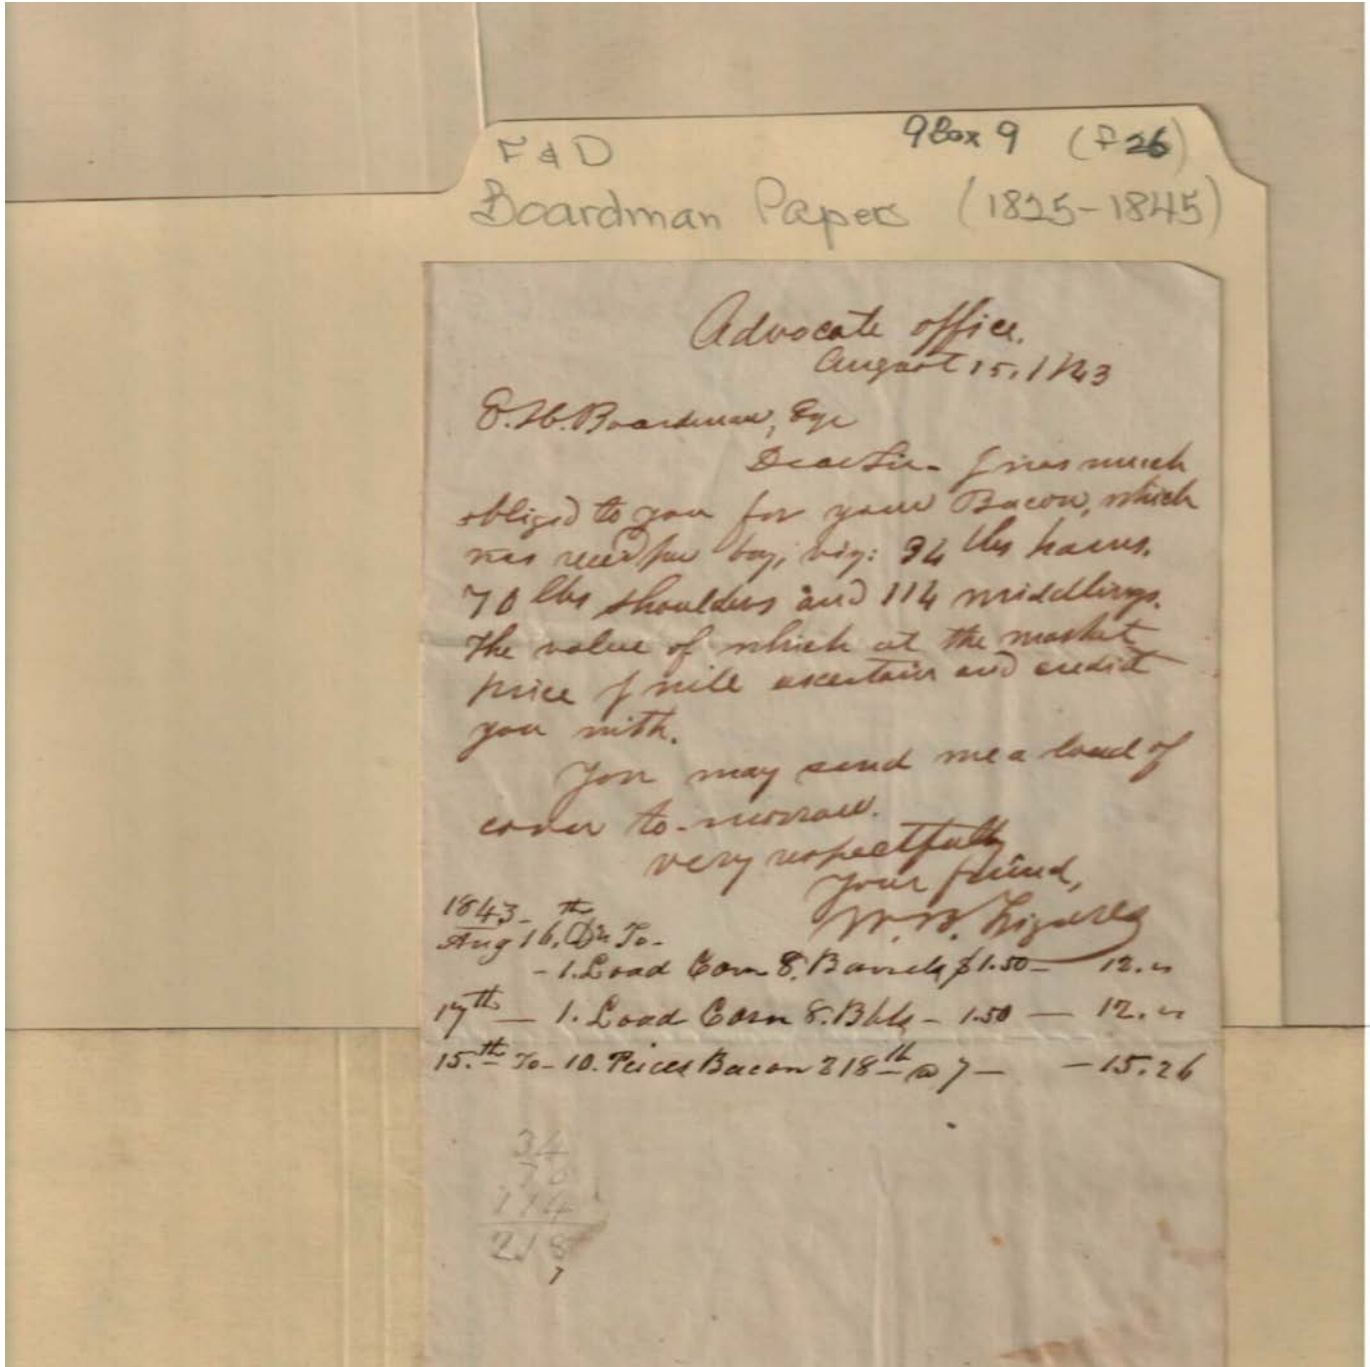 F & D
9 Box 9 (F 26)
Boardman Papers (1825-1845)
Advocate office.
August 15, 1843
E. H. Boardman, Esqr
Dear Sir - I was much
obliged to you for your Bacon, which
was recd per boy, viz: 34 lbs hams.
70 lbs shoulders and 114 middlings.
The value of which at the market
price I will ascertain and credit
you with.
You may send me a load of
corn to-morrow.
very respectfully
Your friend,
W. W.
1843-
Aug 16.th Dr. To-
- 1. Load Corn 8. Barrels $1.50 - 12. "
17th - 1. Load Corn 8. Bbls - 1.50 - 12. "
15.th To - 10. Peices Bacon 218 lb @ 7 - - 15.26
34
70
114
218
7